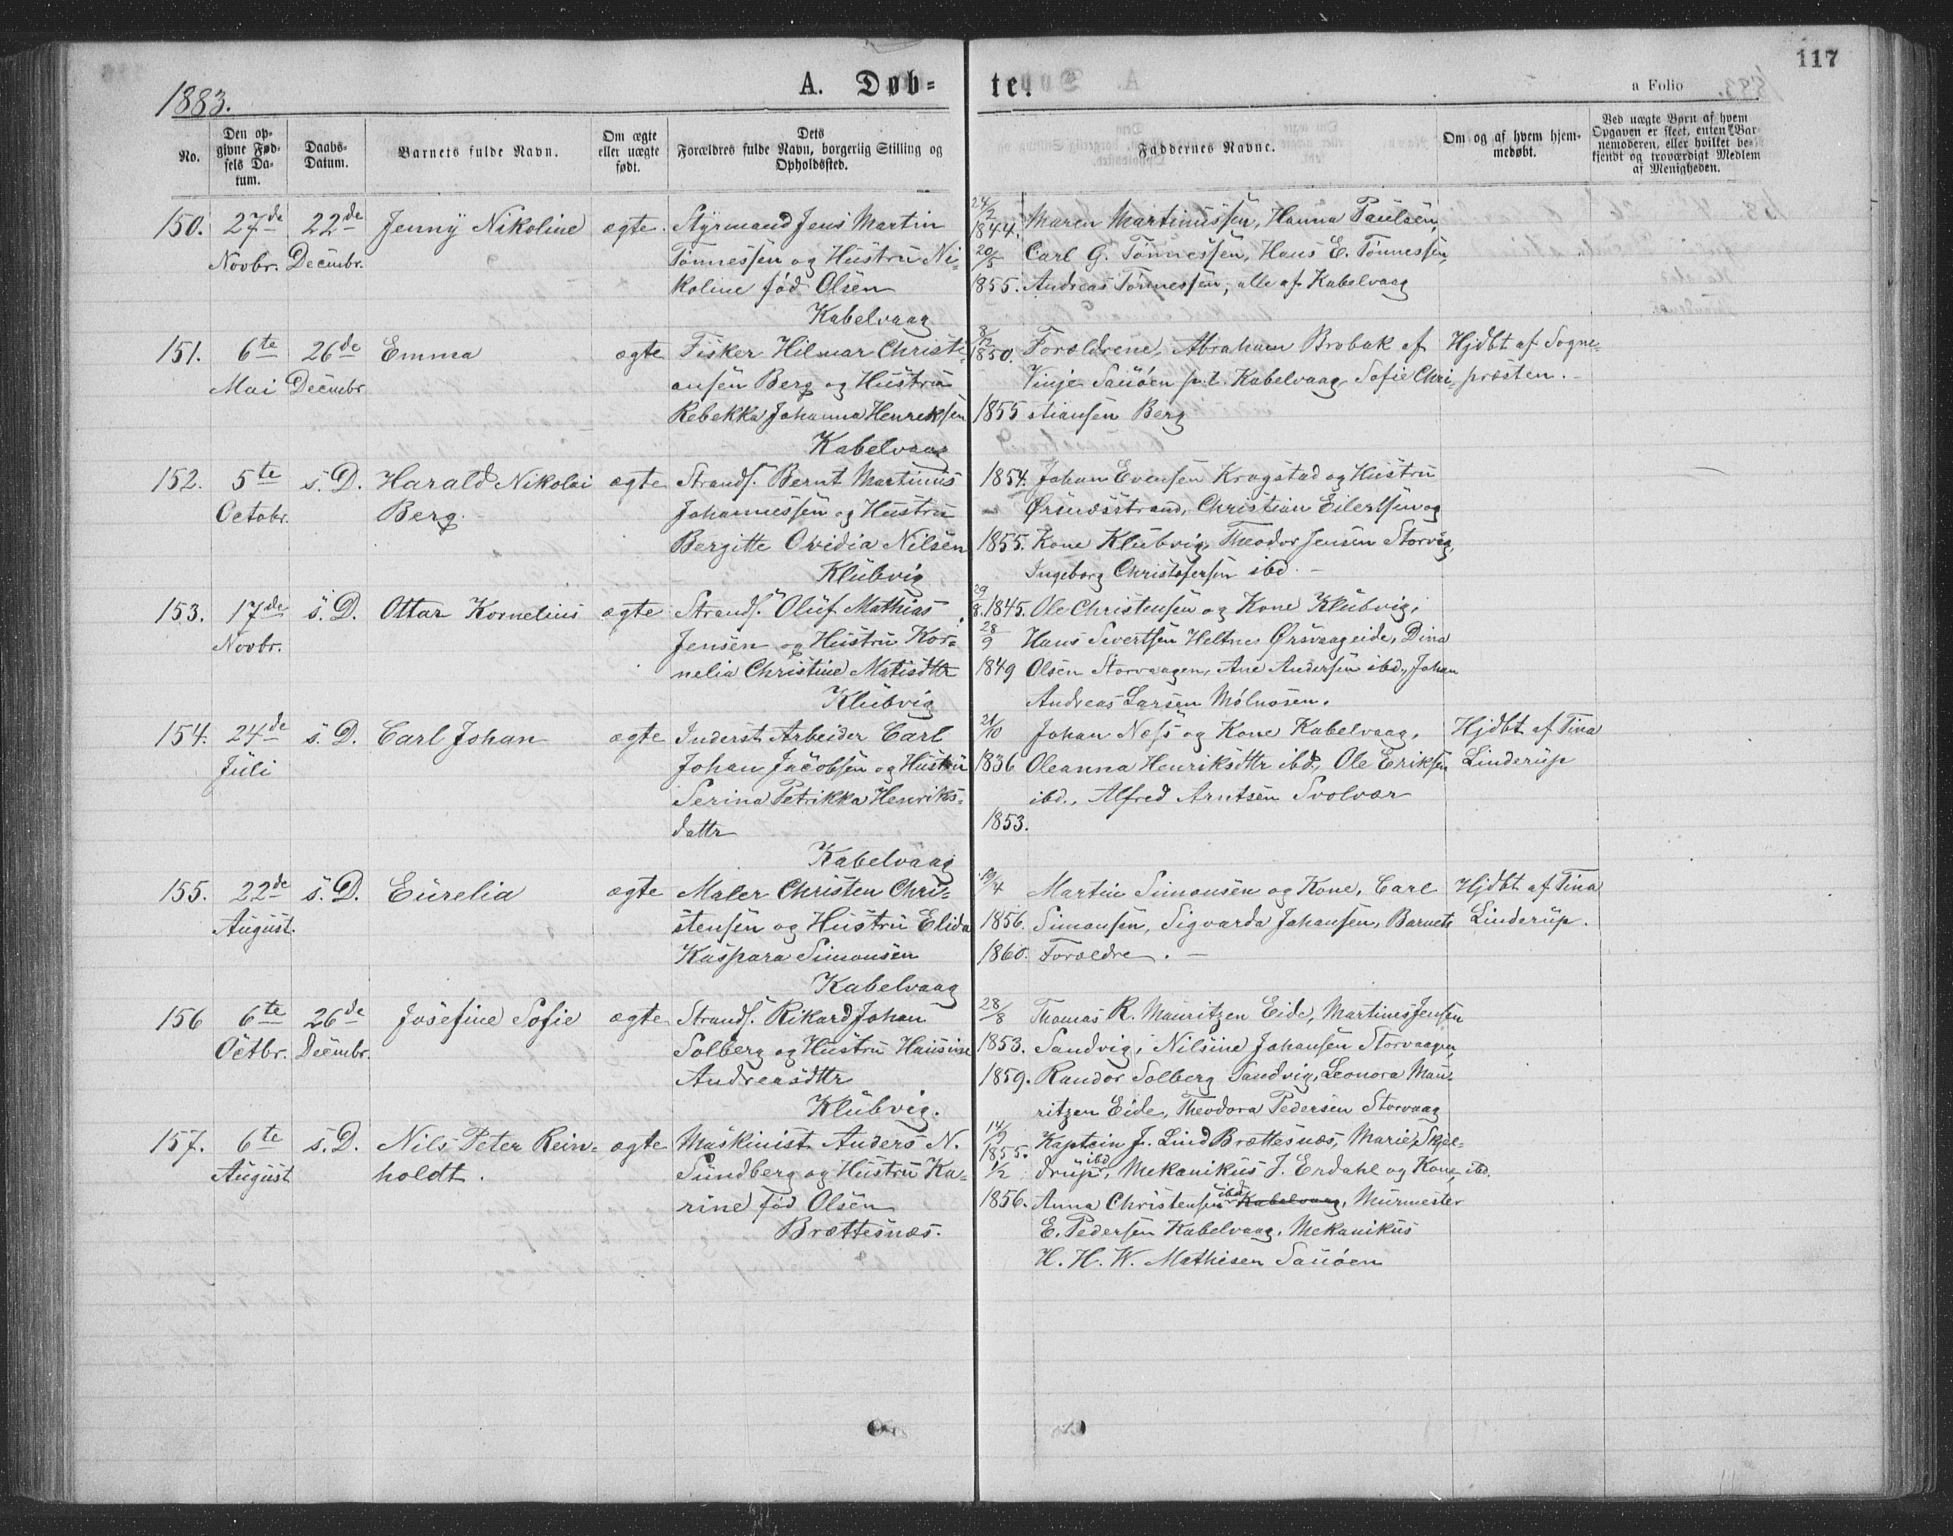 117
1883.
A. Døb-te.
a Folio
No.
Den op-
givne Fød-
sels Da-
tum.
Daabs-
Datum.
Barnets fulde Navn.
Om ægte
eller uægte
født.
Dets
Forældres fulde Navn, borgerlig Stilling og
Opholdssted.
Faddernes Navne.
Om og af hvem hjem-
medøbt.
Ved uægte Børn af hvem
Opgaven er skeet, enten Bar-
nemoderen, eller hvilket be-
kjendt og troværdigt Medlem
af Menigheden.
150. 27de 22de Jenny Nikoline ægte. Styrmand Jens Martin
Novbr. Decmbr. Tønnessen og Hustru Ni-
koline fød Olsen
Kabelvaag
24/2 1844. Maren Martinussen, Hanna Paulsen,
20/5 Carl G. Tønnessen, Hans E. Tønnessen,
1855. Andreas Tønnessen, alle af Kabelvaag
151. 6te 26de Emma ægte Fisker Hilmar Christi-
Mai Decmbr. ansen Berg og Hustru
Rebekka Johanna Henriksen
Kabelvaag
1850. Forældrene, Abraham Brobak af Hjdbt af Sogne-
Vinje Sauøen p.t. Kabelvaag, Sofie Chri- præsten.
1855 stiansen Berg
152. 5te s. D. Harald Nikolai ægte Strands. Bernt Martinus
Octobr. Berg. Johannessen og Hustru
Bergitte Ovidia Nilsen
Klubvig
1854. Johan Evensen Kragstad og Hustru
Ørsnæsstrand, Christian Eilertsen og
1855. Kone Klubvig, Theodor Jensen Storvåg,
Ingeborg Christofersen ibd. –
153. 17de s. D. Ottar Kornelius ægte Strands. Oluf Mathias
Novbr. Jensen og Hustru Kor-
nelia Christine Matisdtr
Klubvig
29/8. 1845. Ole Christensen og Kone Klubvig,
28/9 Hans Sivertsen Heltnes Ørsvaageide, Dina
1849 Olsen Storvaagen, Ane Andersen ibd., Johan
Andreas Larsen Mølnosen.
154. 24de s. D. Carl Johan ægte Inderst Arbeider Carl
Juli Johan Jacobsen og Hustru
Serina Petrikka Henriks-
dattr
Kabelvaag
21/10 Johan Ness og Kone Kabelvaag, Hjdbt af Tina
1836 Oleanna Henriksdtr ibd., Ole Eriksen Linderup
ibd., Alfred Arntsen Svolvær
1853.
155. 22de s. D. Eurelia ægte Maler Christen Chri-
August. stensen og Hustru Elida
Kaspara Simonsen
Kabelvaag
19/4 Martin Simonsen og Kone, Carl Hjdbt af Tina
1856. Simonsen, Sigvarda Johansen, Barnets Linderup.
1860. Forældre. –
156 6te 26de Josefine Sofie ægte Strands. Rikard Johan
Octbr. Decmbr. Solberg og Hustru Hansine
Andreasdtr
Klubvig.
28/8 Thomas R. Mauritzen Eide, Martines Jensen
1853. Sandvig, Nilsine Johansen Storvaagen,
1859. Randor Solberg Sandvig, Leonora Mau-
ritzen Eide, Theodora Pedersen Storvaag
157. 6te s. D. Nils Peter Rein- ægte Maskinist Anders N.
August holdt. Sundberg og Hustru Ka-
rine fød Olsen
Brættesnæs.
14/9 1855. Kaptein J. Lind Brættesnæs, Marie Skjel-
1/2 drup ibd, Mekanikus J. Erdahl og Kone, ibd.
1856. Anna Christensen ibd Kabelvaag, Murmester
E. Pedersen Kabelvaag, Mekanikus
H. H. W. Mathisen Sauøen